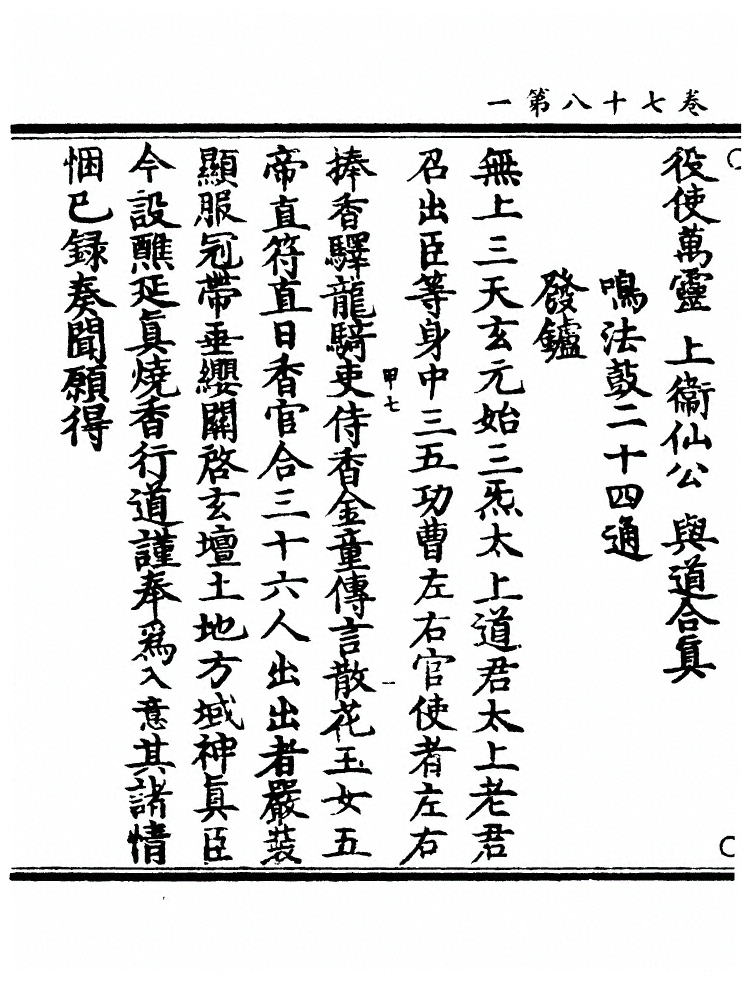 卷七十八第一
役使萬靈 上衞仙公 與道合眞
鳴法鼓二十四通
發鑪
無上三天玄元始三炁太上道君太上老君
召出臣等身中三五功曹左右官使者左右
捧香驛龍騎吏侍香金童傳言散花玉女五
甲七
帝直符直日香官合三十六人出出者嚴裝
顯服冠帶垂纓關啓玄壇土地方域神眞臣
今設醮延眞燒香行道謹奉爲入意其諸情
悃已録奏聞願得